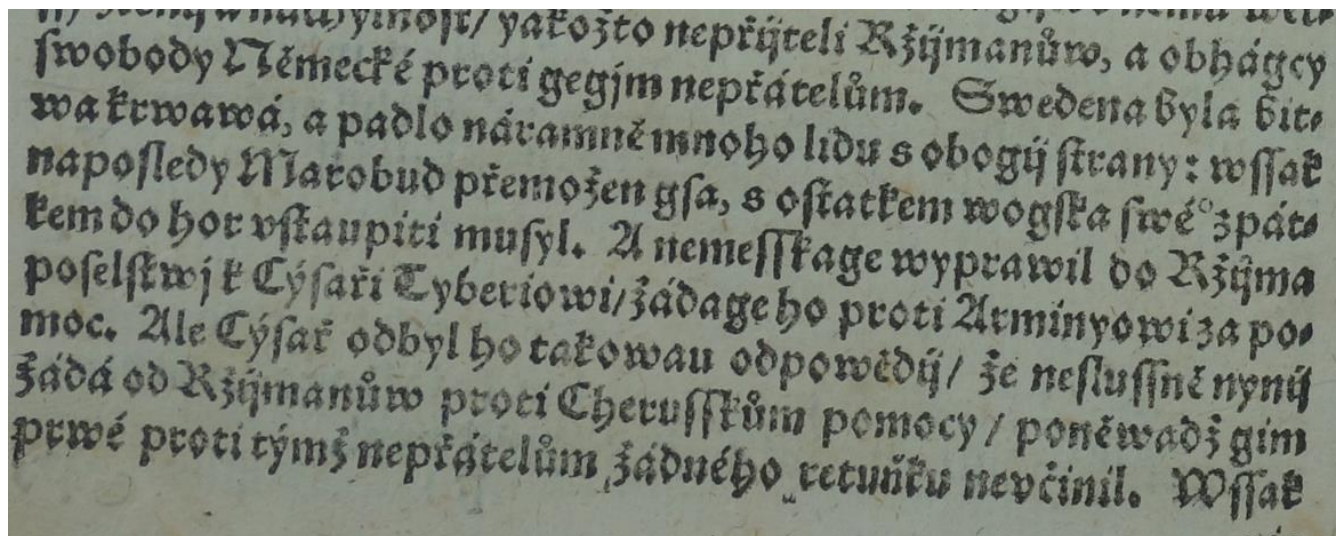 nachylnost/ yakožto nepřijteli Ržijmanůw, a obhágcy
swobody Německé proti gegjm nepřátelům. Swedena byla bit-
wa krwawá, a padlo náramně mnoho lidu s obogij strany: wssak
naposledy Marobud přemožen gsa, s ostatkem wogska swé° zpát-
kem do hor vstaupiti musyl. A nemesskage wyprawil do Ržijma
poselstwj k Cýsaři Tyberiowi/ žádage ho proti Arminyowi za po-
moc. Ale Cýsař odbyl ho takowau odpowědij/ že neslussně nynij
žádá od Ržijmanůw proti Cherusskům pomocy/ poněwadž gim
prwé proti týmž nepřátelům žádného retuňku nevčinil. Wssak